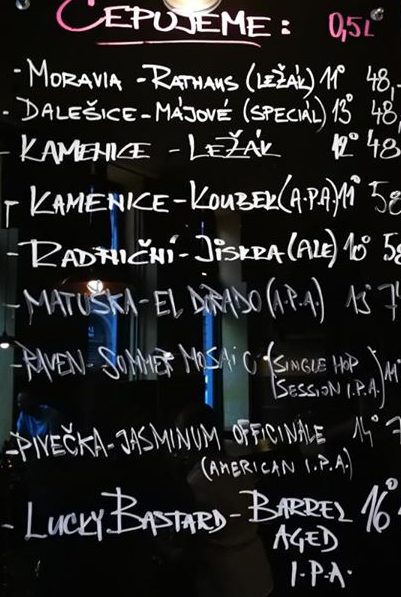 ČEPUJEME: 0,5L
- MORAVIA - RATHAUS (LEŽÁK) 11° 48,-
- DALEŠICE - MÁJOVÉ (SPECIÁL) 13° 48,
- KAMENICE - LEŽÁK 12° 48
- KAMENICE - KOUBEK (A.P.A) 11° 58
- RADNIČNÍ - JISKRA (ALE) 10° 58
- MATUŠKA - EL DORADO (A.P.A.) 13° 7
- RAVEN - SOMMER MOSAIC (SINGLE HOP
SESSION I.P.A) 11°
- PIVEČKA - JASMINUM OFFICINALE 14° 7
(AMERICAN I.P.A)
- LUCKY BASTARD - BARREL 16°
AGED
I.P.A.